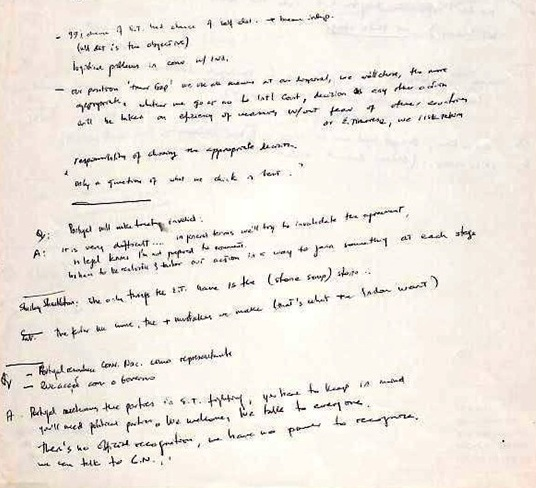 - 99% chance of E.T. had chance of self det. + became indep.
(self det is the objective)
logistical problems in conv w/ Ind.
- our position "Timor Gap" we use all means at our disposal, we will chose, the more
appropriate, whether we go or no to Int'l Court, decision as any other action
will be taken on eficiency of measures w/out fear of other countries
or E.Timorese, we
responsibility of chosing the appropriate decision.
"only a question of what we think is best."
Q: Portugal will make treaty invalid?
A: it is very difficult .... in general terms we'll try to invalidate the agreement,
in legal terms I'm not prepared to comment.
to be realistic & tailor our action in a way to gain something at each stage
Shirley Shackleton: the only thing the E.T. have is the (stone soup) story ..
the more we, the + mistakes we make (that's what the Indon want)
Q - Portugal Conv. Nac. como representante
- com o Governo
A. Portugal welcomes the parties in E.T. fighting, you have to keep in mind
you'll need political parties, we welcome, we talk to everyone.
There's no official recognition, we have no power to recognize.
we can talk to C.N. ..